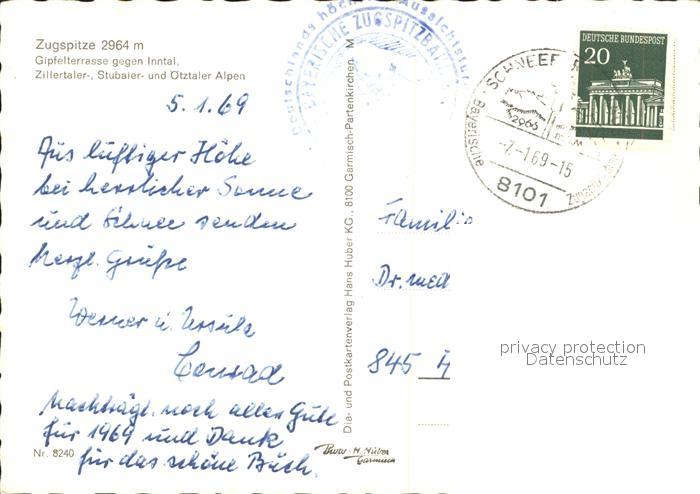 Zugspitze 2964 m
Gipfelterrasse gegen Inntal,
Zillertaler-, Stubaier- und Ötztaler Alpen
5.1.69
Aus luftiger Höhe
bei herrlicher Sonne
und Schnee senden
herzl. Grüße
Werner u. Ursula
Conrad
Nachträgl. noch alles Gute
für 1969 und Dank
für das schöne Buch.
Nr. 8240
Dia- und Postkartenverlag Hans Huber KG., 8100 Garmisch-Partenkirchen M
H. Huber
Garmisch
Deutschlands
BAYERISCHE ZUGSPITZBAHN
SCHNEEF
2966
-7.-1.69-15
Bayerische
8101
DEUTSCHE BUNDESPOST
20
Familie
Dr. med
845
privacy protection
Datenschutz